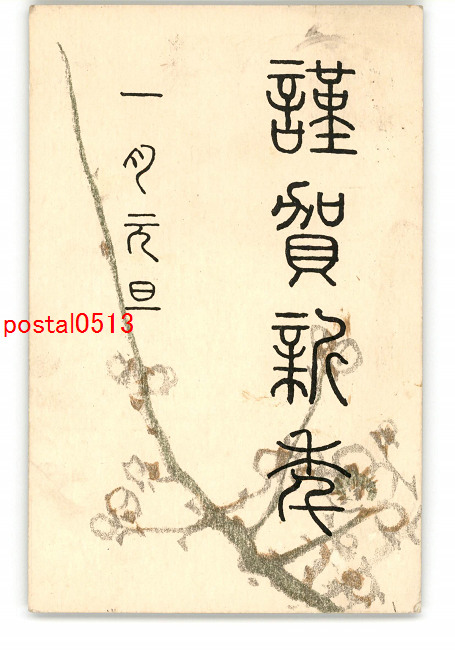 謹賀新年
一月元旦
postal0513